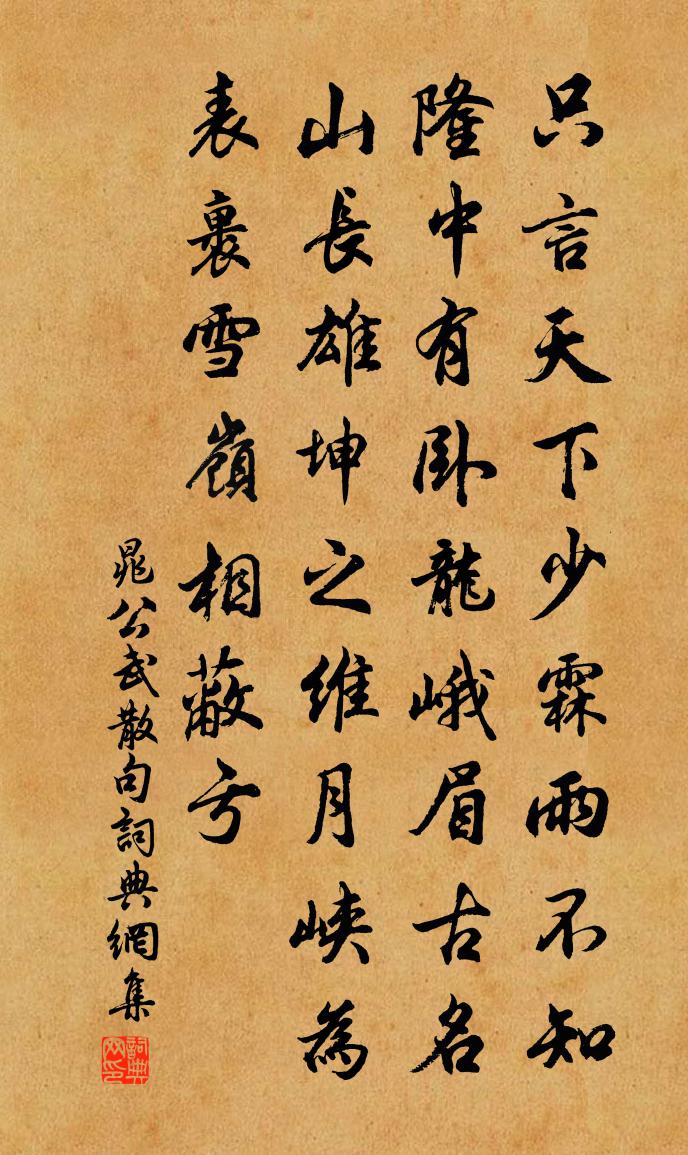 只言天下少霖雨不知
隆中有卧龍峨眉古名
山長雄坤之維月峽為
表裏雪嶺相蔽亏
晁公武散句詞典網集
詞典網印